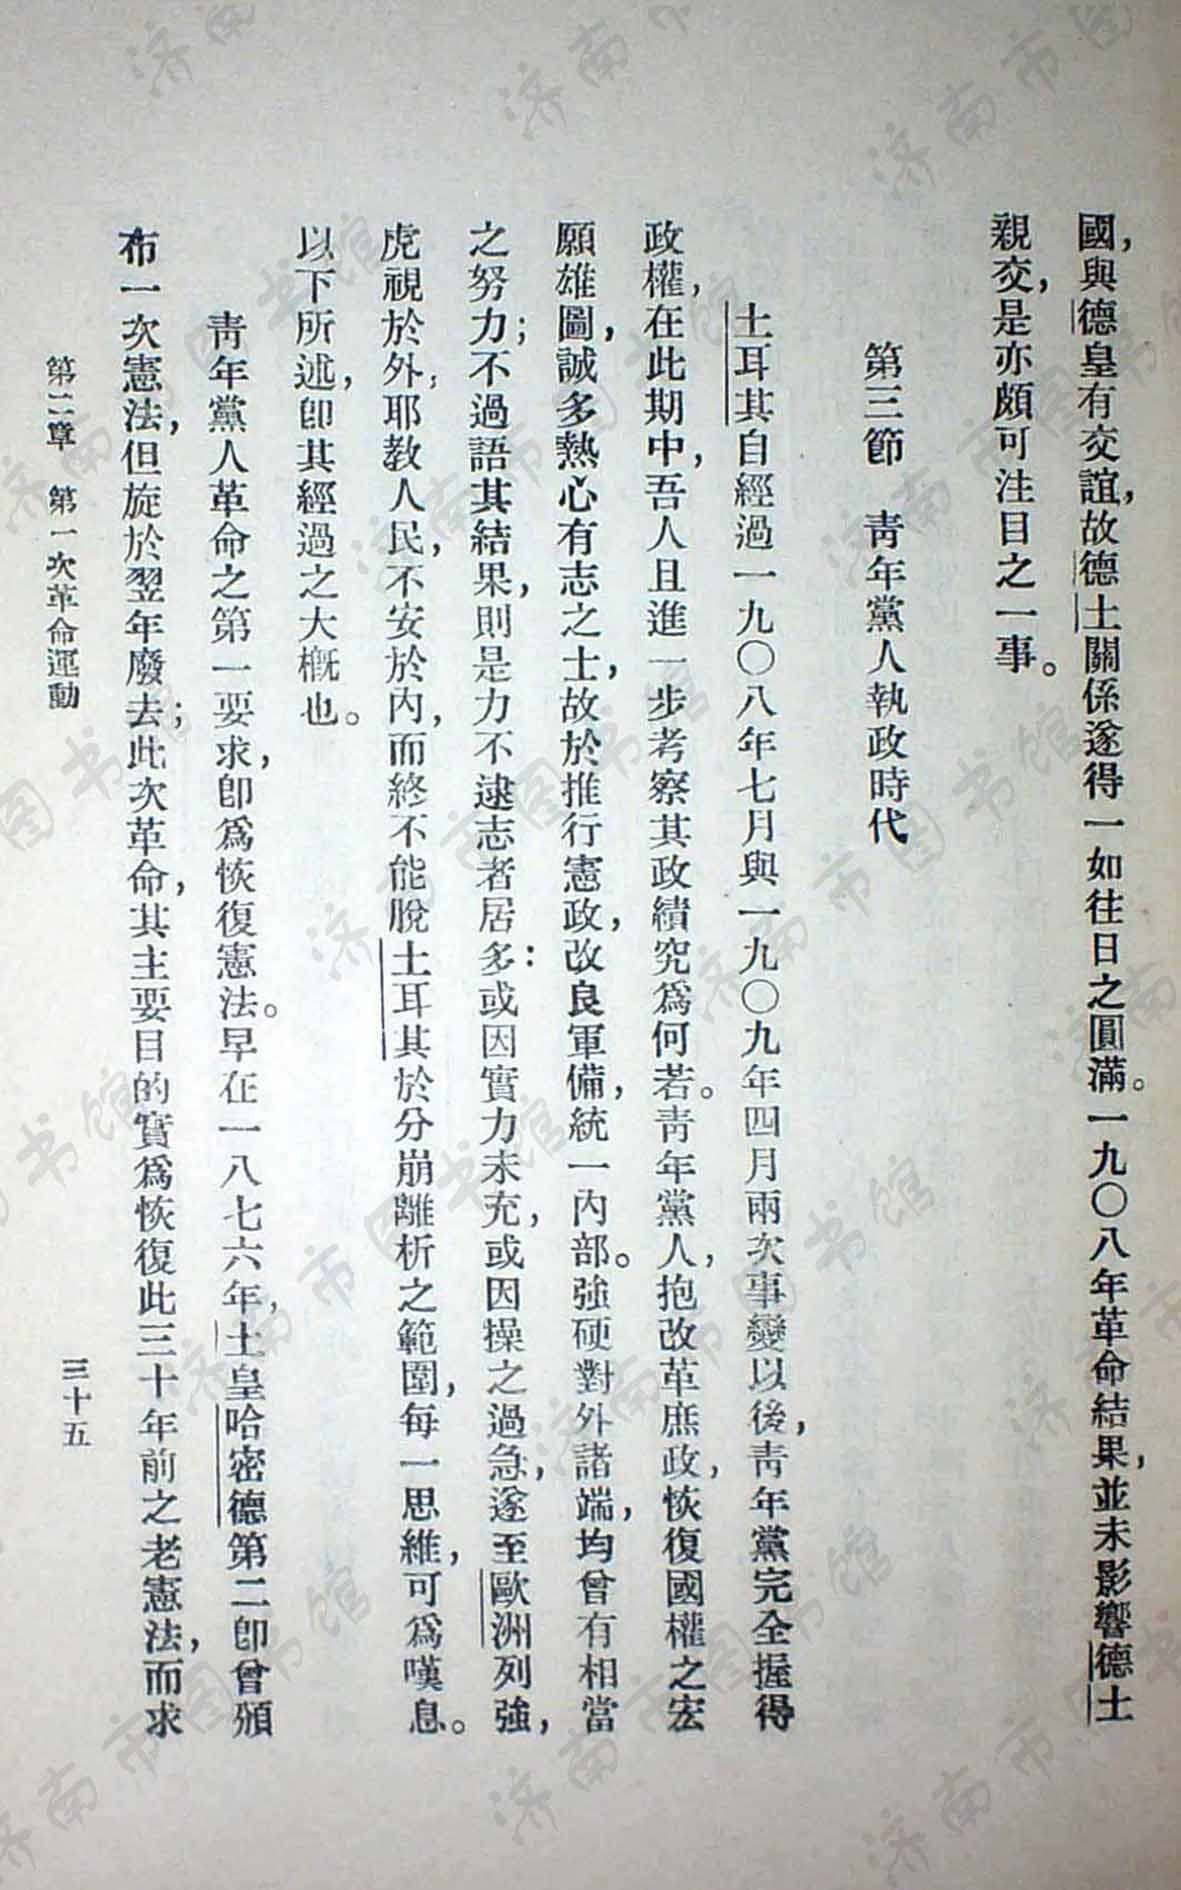 國，與德皇有交誼，故德土關係遂得一如往日之圓滿。一九〇八年革命結果，並未影響德土
親交，是亦頗可注目之一事。
第三節　青年黨人執政時代
土耳其自經過一九〇八年七月與一九〇九年四月兩次事變以後，青年黨完全握得
政權，在此期中，吾人且進一步考察其政績究爲何若。青年黨人，抱改革庶政，恢復國權之宏
願雄圖，誠多熱心有志之士，故於推行憲政，改良軍備，統一內部。強硬對外諸端，均曾有相當
之努力；不過語其結果，則是力不逮志者居多：或因實力未充，或因操之過急，遂至歐洲列強，
虎視於外；耶教人民，不安於內，而終不能脫土耳其於分崩離析之範圍，每一思維，可爲嘆息。
以下所述，卽其經過之大概也。
青年黨人革命之第一要求，卽爲恢復憲法。早在一八七六年，土皇哈密德第二卽曾頒
布一次憲法，但旋於翌年廢去；此次革命，其主要目的實爲恢復此三十年前之老憲法，而求
第二章　第一次革命運動
三十五
济南市图书馆